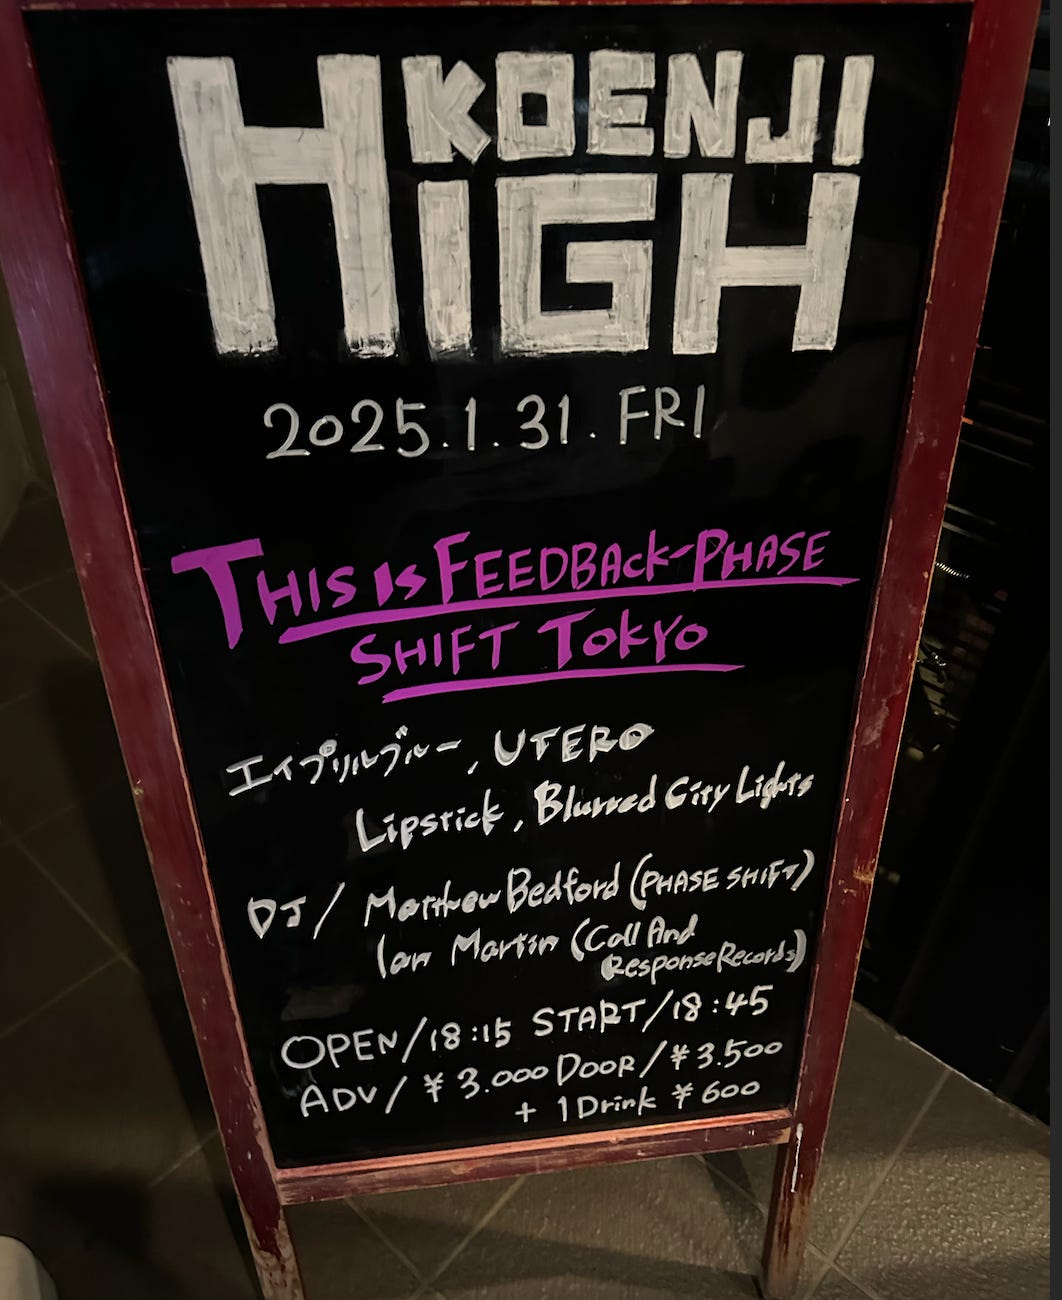 KOENJI
HIGH
2025.1.31. FRI
THIS IS FEEDBACK-PHASE
SHIFT TOKYO
エイプリルブルー, UTERO
Lipstick, Blurred City Lights
DJ/ Matthew Bedford (PHASE SHIFT)
Ian Martin (Call And
Response Records)
OPEN/18:15 START/18:45
ADV/¥3.000 DOOR/¥3.500
+ 1Drink ¥600